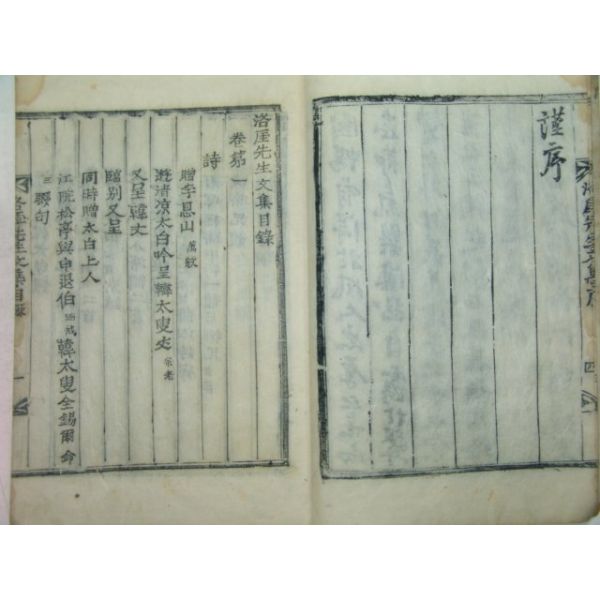 謹序
洛厓先生文集序
四
洛厓先生文集目錄
卷第一
詩
贈李思山
遊清凉太白吟呈韓太叟丈
又呈韓丈
臨別又呈
同時贈太白上人
江院松亭與申退伯 韓太叟全錫爾命
三
聯句
洛厓先生文集目錄
一